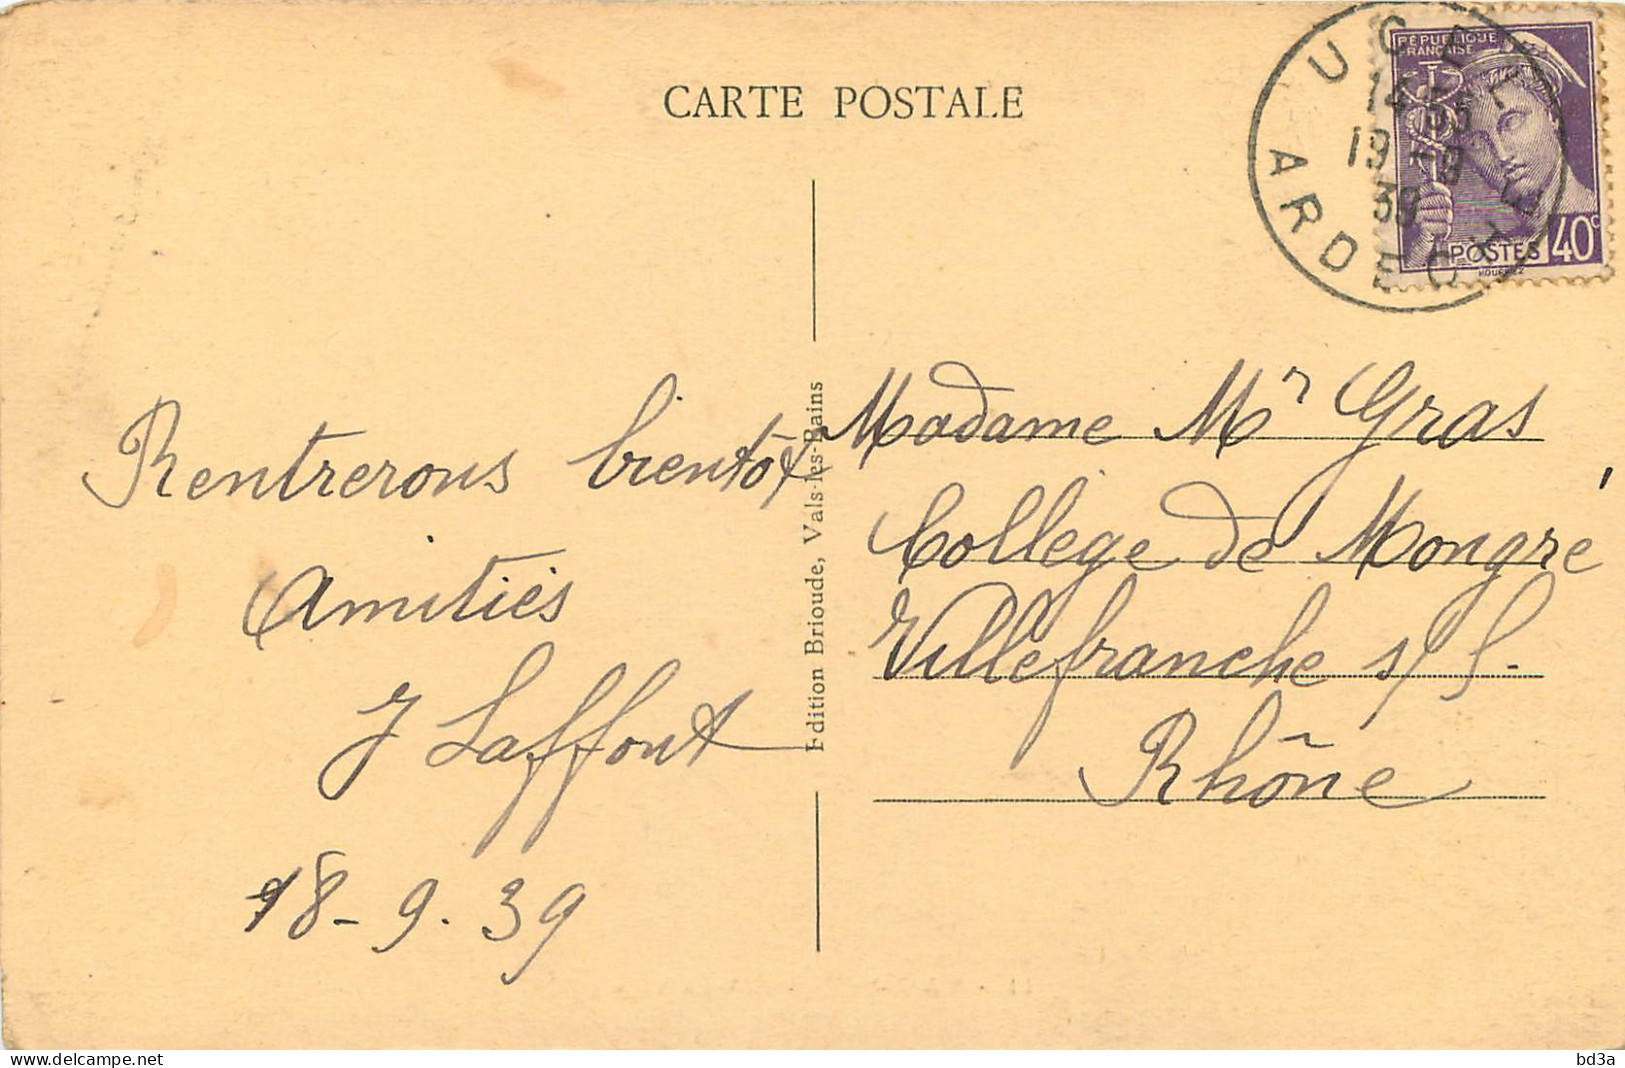 CARTE POSTALE
UCEL
ARDECHE
14 35
19 -9
39
RÉPUBLIQUE
FRANÇAISE
POSTES 40c
Rentrerons bientôt
Amitiés
J Laffont
18-9.39
Edition Brioude, Vals-les-Bains
Madame Mr Gras
College de Mongré
Villefranche s/S.
Rhône
delcampe.net
bd3a